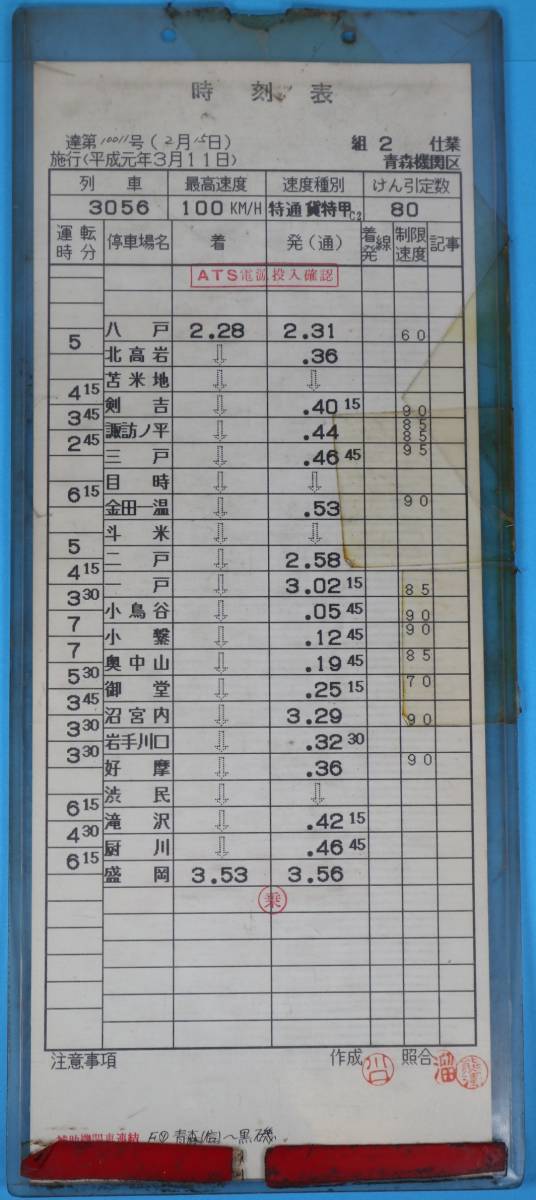 時刻表
達第10011号(2月15日) 組2 仕業
施行(平成元年3月11日) 青森機関区
列車 最高速度 速度種別 けん引定数
3056 100KM/H 特通貨特甲C2 80
運転時分 停車場名 着 発(通) 着発線 制限速度 記事
ATS電源投入確認
八戸 2.28 2.31 60
5
北高岩 ⇩ .36
苫米地 ⇩ ⇩
4 15
剣吉 ⇩ .40 15 90
3 45
85
諏訪ノ平 ⇩ .44 85
2 45
三戸 ⇩ .46 45 95
目時 ⇩ ⇩
6 15
金田一温 ⇩ .53 90
斗米 ⇩ ⇩
5
二戸 ⇩ 2.58
4 15
一戸 ⇩ 3.02 15 85
3 30
小鳥谷 ⇩ .05 45 90
7
小繋 ⇩ .12 45 90
7
奥中山 ⇩ .19 45 85
5 30
御堂 ⇩ .25 15 70
3 45
沼宮内 ⇩ 3.29 90
3 30
岩手川口 ⇩ .32 30
3 30
好摩 ⇩ .36 90
渋民 ⇩ ⇩
6 15
滝沢 ⇩ .42 15
4 30
厨川 ⇩ .46 45
6 15
盛岡 3.53 3.56
乗
注意事項 作成 照合
補助機関車連結 青森(信)~黒磯